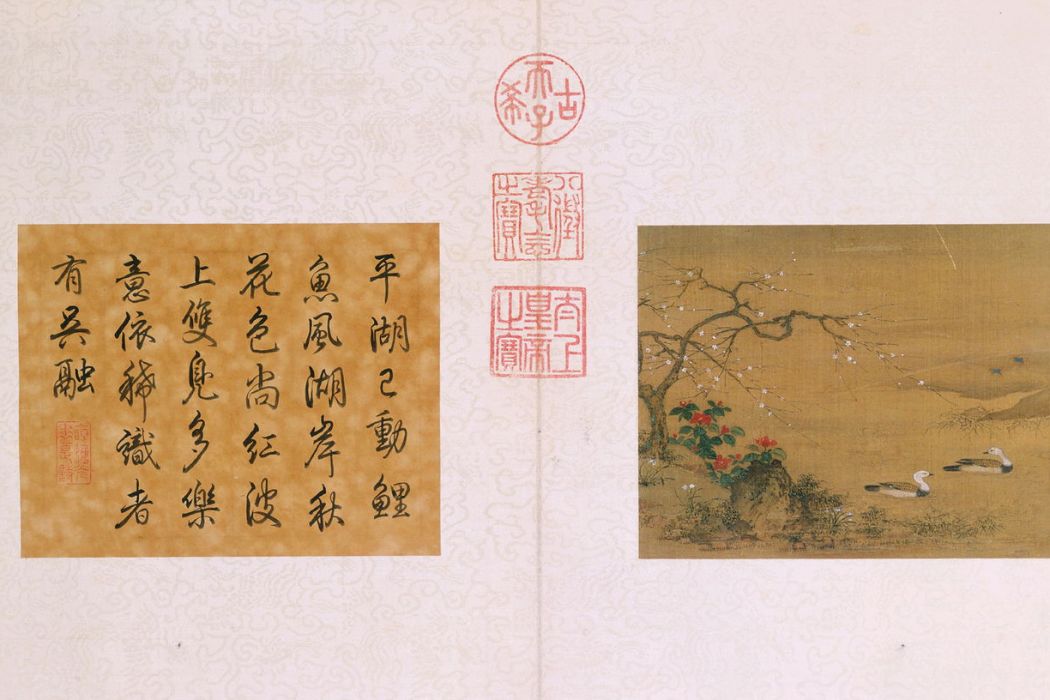 古
天子
希
八徵
耄念
之寶
太上
皇帝
之寶
平湖已動鯉
魚風湖岸秋
花色尚紅波
上雙鳧多樂
意依稀識者
有吳融